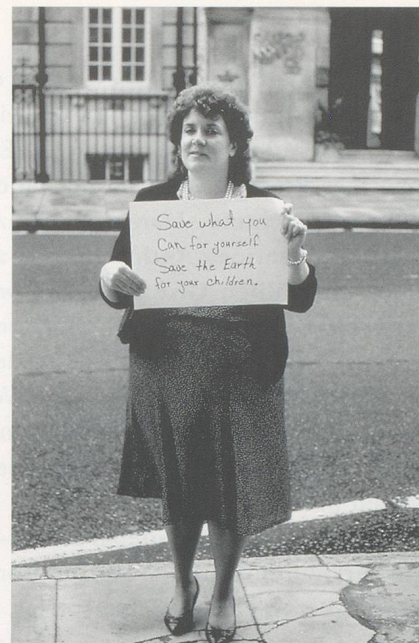 Save what you
Can for yourself
Save the Earth
for your children.